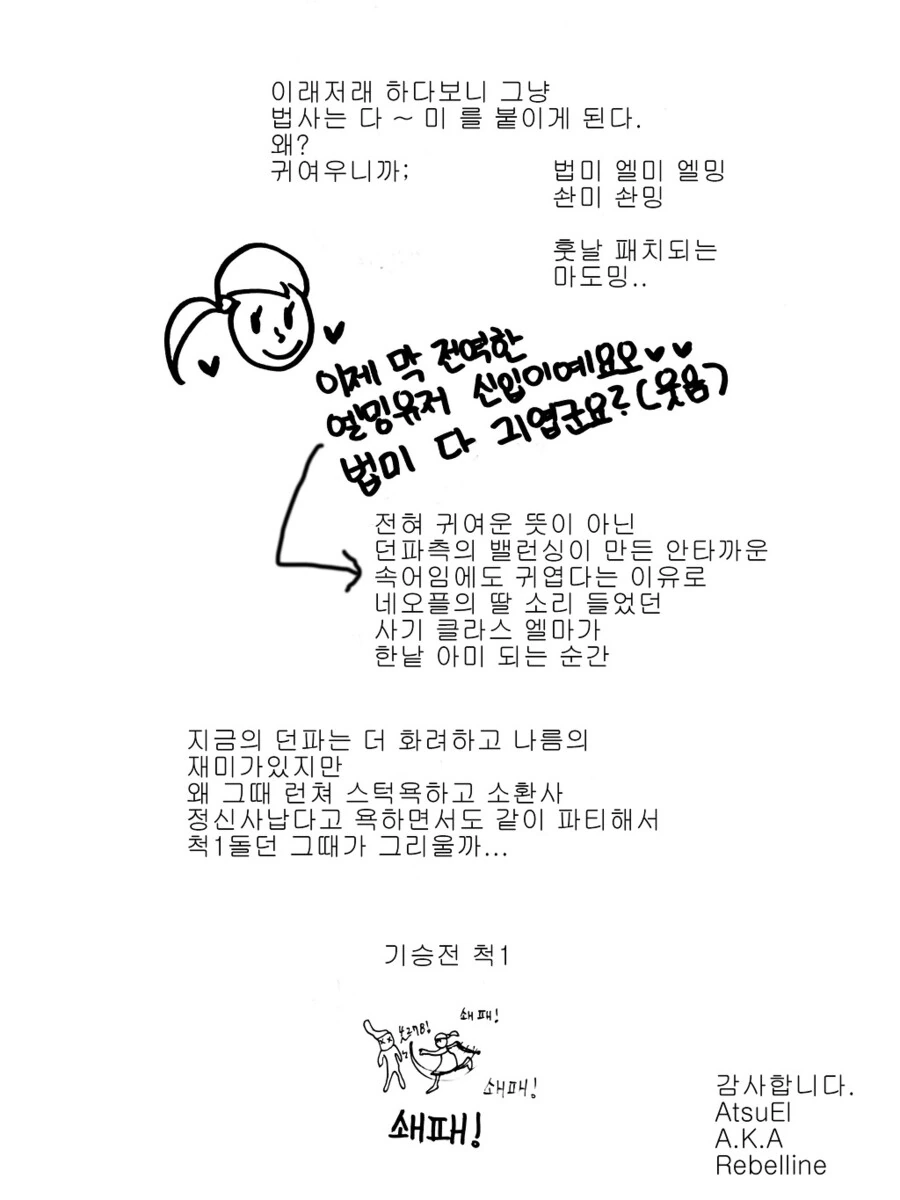 이래저래 하다보니 그냥
법사는 다 ~ 미 를 붙이게 된다.
왜?
귀여우니까;
법미 엘미 엘밍
솬미 솬밍
훗날 패치되는
마도밍..
이제 막 전역한
엘밍유저 신입이예요오♥♥
법미 다 귀엽군요?(웃음)
전혀 귀여운 뜻이 아닌
던파측의 밸런싱이 만든 안타까운
속어임에도 귀엽다는 이유로
네오플의 딸 소리 들었던
사기 클라스 엘마가
한낱 아미 되는 순간
지금의 던파는 더 화려하고 나름의
재미가있지만
왜 그때 런쳐 스턱욕하고 소환사
정신사납다고 욕하면서도 같이 파티해서
척1돌던 그때가 그리울까...
기승전 척1
쇄패!
쇄패!
쇄패!
감사합니다.
AtsuEl
A.K.A
Rebelline